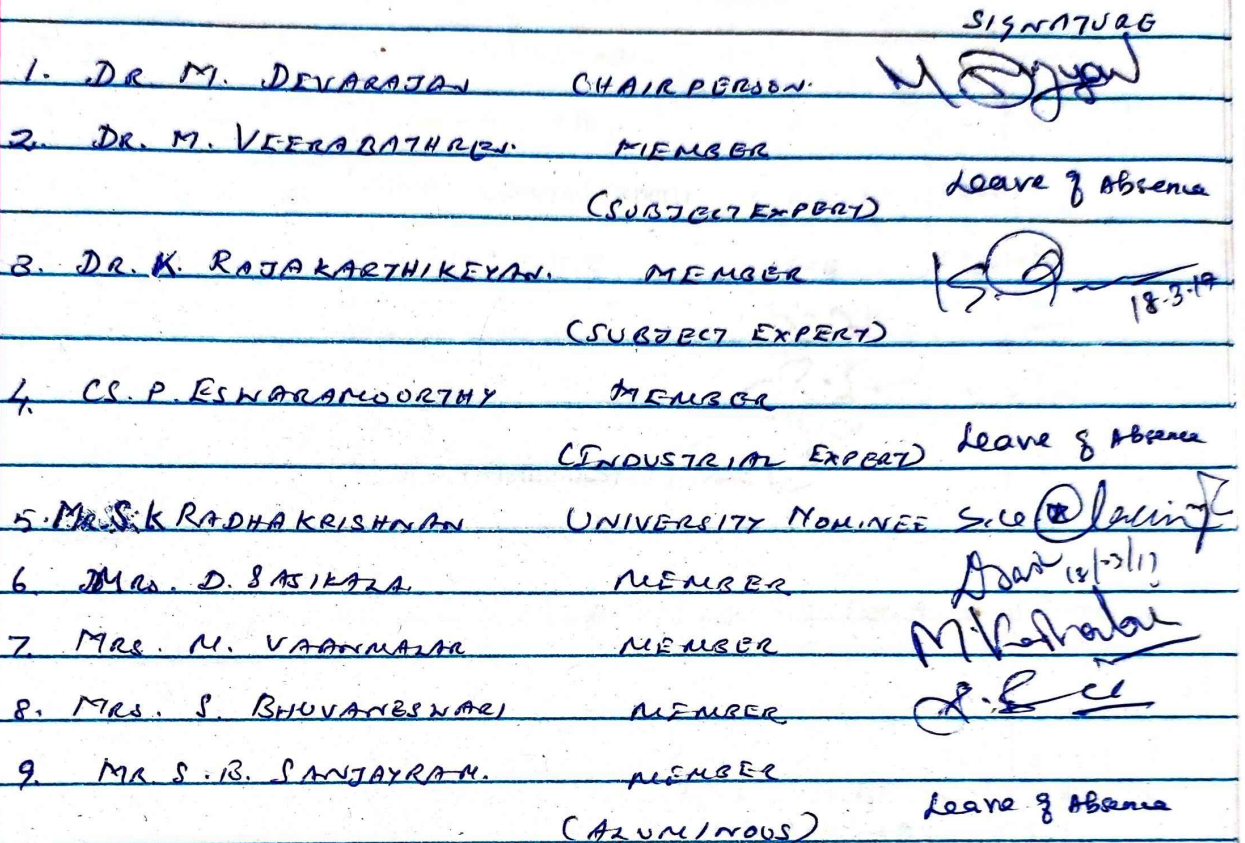 SIGNATURE
1. DR M. DEVARAJAN CHAIRPERSON.
2. DR. M. VEERABATHREN. MEMBER
Leave of Absence
(SUBJECT EXPERT)
3. DR. K. RAJAKARTHIKEYAN. MEMBER
18.3.17
(SUBJECT EXPERT)
4. CS. P. ESWARAMOORTHY MEMBER
(INDUSTRIAL EXPERT) Leave of Absence
5. MR. S.K RADHAKRISHNAN UNIVERSITY NOMINEE
6. MRS. D. SASIKALA. MEMBER
7. MRS. M. VAANMALAR MEMBER
8. MRS. S. BHUVANESWARI MEMBER
9. MR S.B. SANJAYRAM. MEMBER
Leave of Absence
(ALUMINOUS)